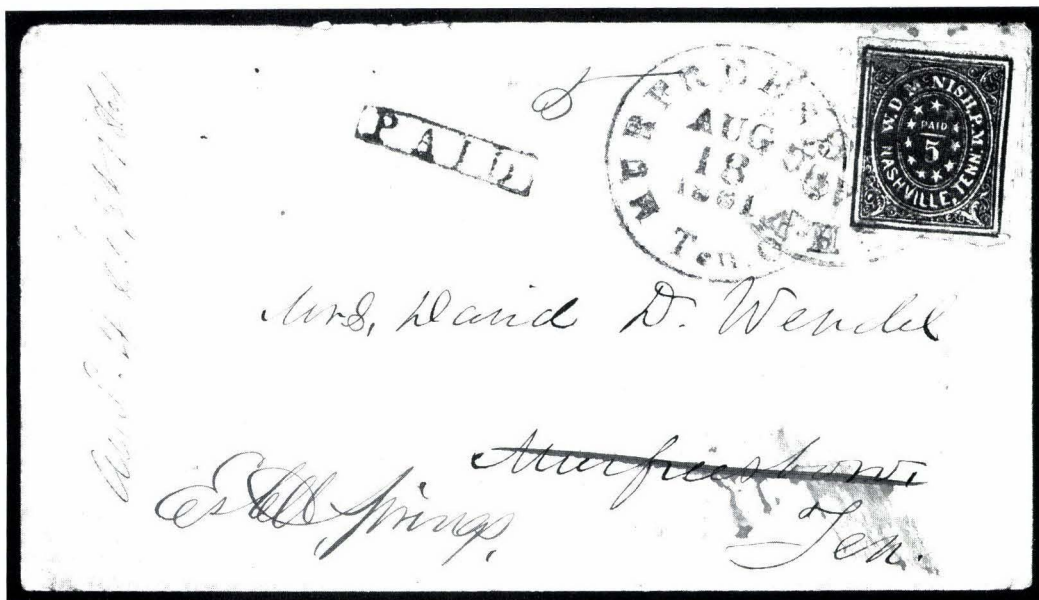 5
PAID
MURFREESBORO
AUG
18
1861
Ten.
W.D. McNISH, P.M.
PAID
5
NASHVILLE, TENN.
Mrs. David D. Wendel
Murfreesboro,
Estell Springs,
Ten.